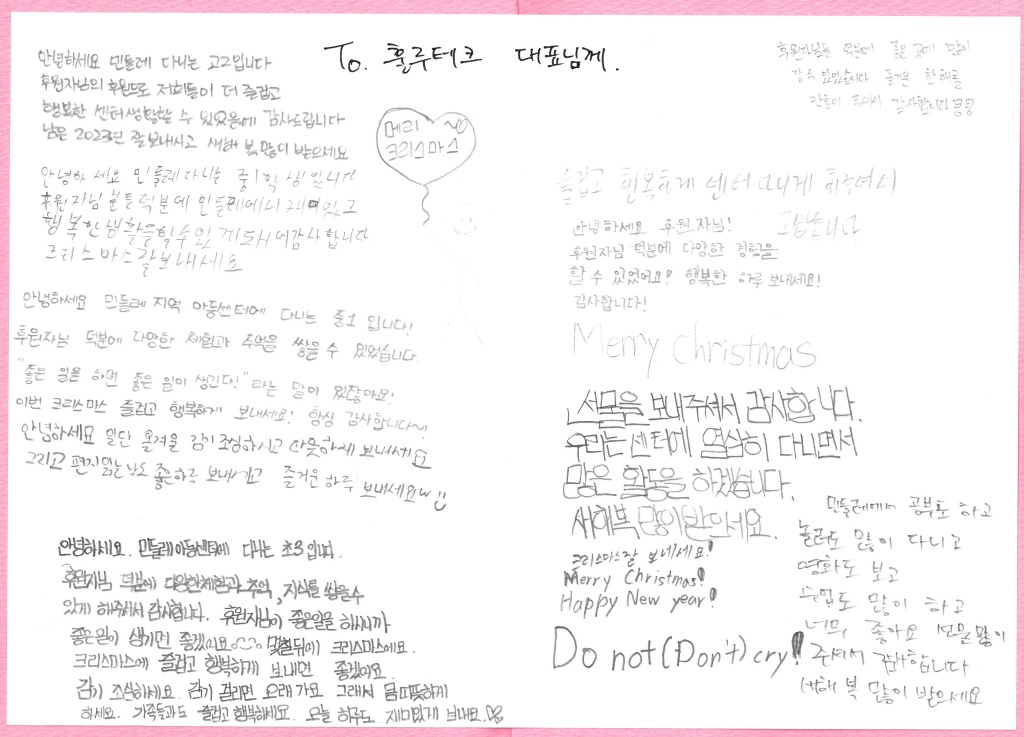 To. 훌루테크 대표님께.
안녕하세요 민들레 다니는 고2입니다
후원자님의 후원으로 저희들이 더 즐겁고
행복한 센터생활할 수 있었음에 감사드립니다
남은 2023년 잘 보내시고 새해 복 많이 받으세요
메리
크리스마스
안녕하세요 민들레 다니는 중1학생입니다
후원자님분들덕분에 민들레에서 재미있고
행복한생활을할수있게되어감사합니다
크리스마스잘보내세요
안녕하세요 민들레 지역 아동센터에 다니는 중1 입니다!
후원자님 덕분에 다양한 체험과 추억을 쌓을 수 있었습니다.
"좋은 일을 하면 좋은 일이 생긴다!" 라는 말이 있잖아요!
이번 크리스마스 즐겁고 행복하게 보내세요! 항상 감사합니다~!
안녕하세요 일단 올겨울 감기 조심하시고 따뜻하게 보내세요
그리고 편지읽는날도 좋은하루 보내시고 즐거운 하루 보내세요
안녕하세요. 민들레아동센터에 다니는 초3입니다.
후원자님 덕분에 다양한체험과 추억, 지식을 쌓을수
있게 해주셔서 감사합니다. 후원자님이 좋은일을 하시니까
좋은일이 생기면 좋겠어요 몇칠뒤에 크리스마스에요.
크리스마스에 즐겁고 행복하게 보내면 좋겠어요.
감기 조심하세요. 감기 걸리면 오래가요 그래서 몸 따뜻하게
하세요. 가족들과도 즐겁고 행복하세요. 오늘 하루도 재미있게 보내요.
후원자님들 덕분에 좋은 곳에 많이
갈 수 있었습니다 즐거운 한 해를
만들어 주셔서 감사합니다
즐겁고 행복하게 센터 다니게 해주셔서
고맙습니다
안녕하세요 후원자님!
후원자님 덕분에 다양한 경험을
할 수 있었어요! 행복한 하루 보내세요!
감사합니다!
Merry christmas
선물을 보내주셔서 감사합니다.
우리는 센터에 열심히 다니면서
많은 활동을 하겠습니다.
새해복 많이받으세요.
크리스마스 잘 보네세요!
Merry Christmas!
Happy New year!
Do not(Don't) cry!
민들레에서 공부도 하고
놀러도 많이 다니고
영화도 보고
수업도 많이 하고
너무 좋아요 선물 많이
주셔서 감사합니다
새해 복 많이 받으세요